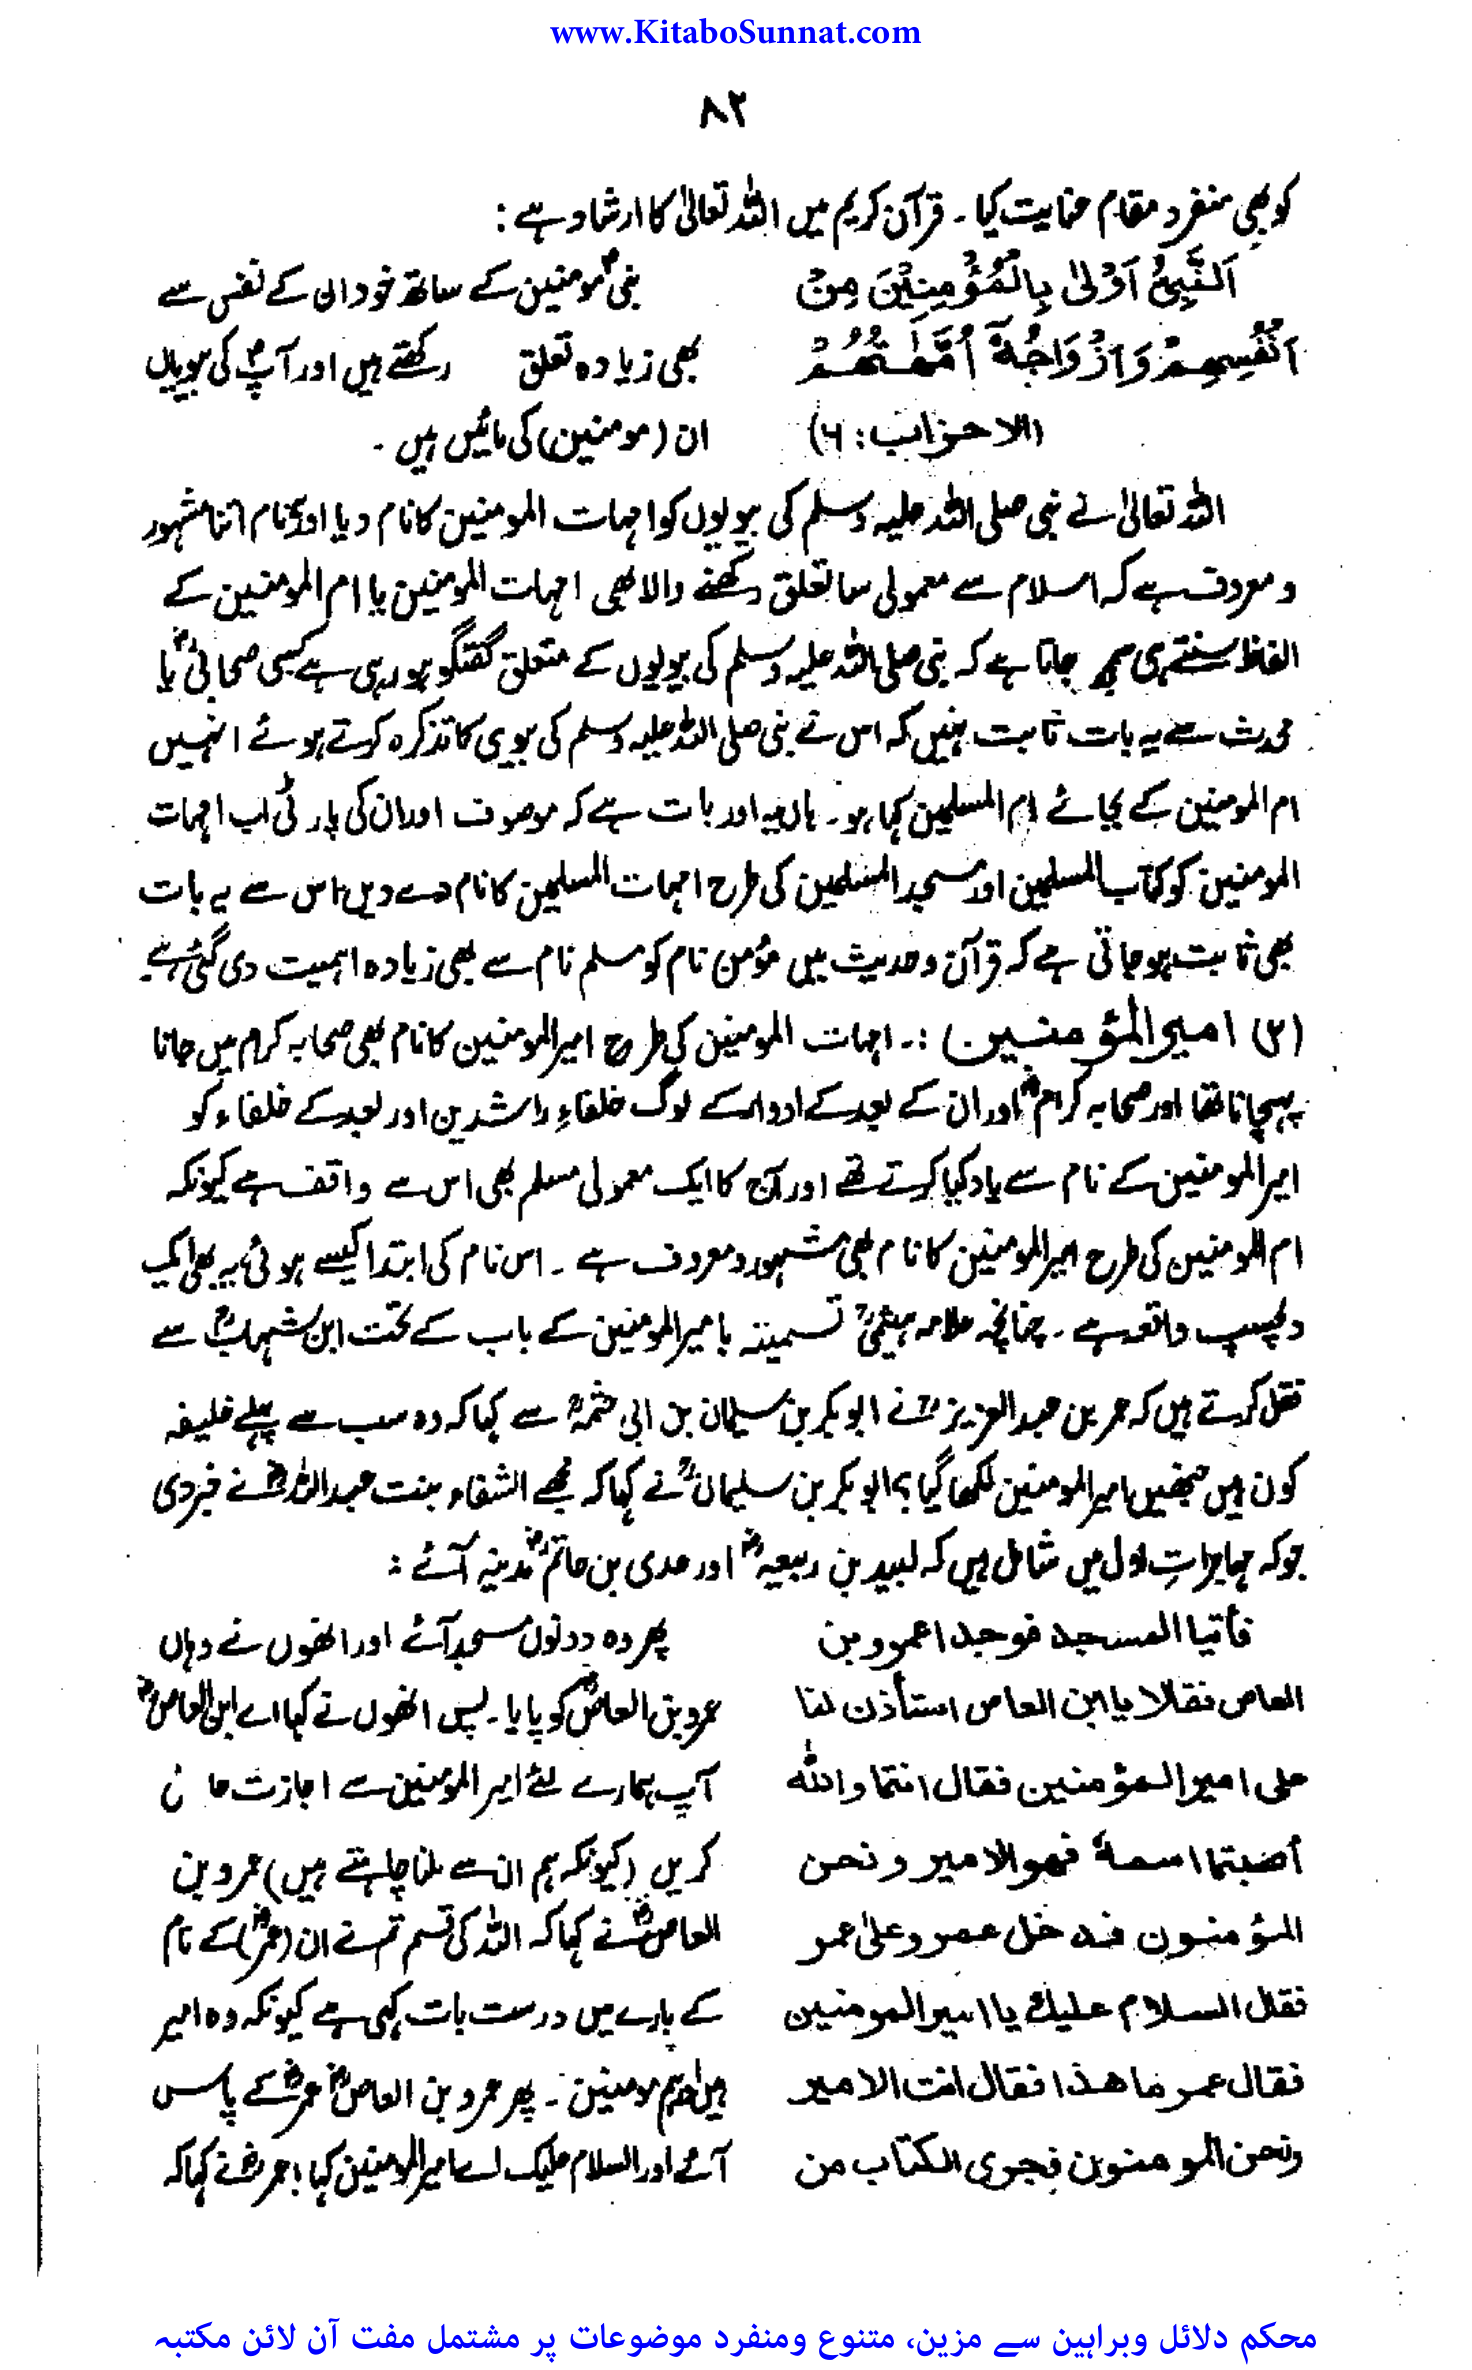 www.KitaboSunnat.com
۸۲
کو بھی منفرد مقام عنایت کیا۔ قرآن کریم میں اللہ تعالیٰ کا ارشاد ہے :
اَلنَّبِیُّ اَوْلٰی بِالْمُؤْمِنِیْنَ مِنْ
نبیؐ مومنین کے ساتھ خود ان کے نفس سے
اَنْفُسِهِمْ وَاَزْوَاجُهٗٓ اُمَّهٰتُهُمْ
بھی زیادہ تعلق رکھتے ہیں اور آپؐ کی بیویاں
(الاحزاب: ۶)
ان (مومنین) کی مائیں ہیں۔
اللہ تعالیٰ نے نبی صلی اللہ علیہ وسلم کی بیویوں کو امہات المومنین کا نام دیا اور یہ نام اتنا مشہور
و معروف ہے کہ اسلام سے معمولی سا تعلق رکھنے والا بھی امہات المومنین یا ام المومنین کے
الفاظ سنتے ہی سمجھ جاتا ہے کہ نبی صلی اللہ علیہ وسلم کی بیویوں کے متعلق گفتگو ہو رہی ہے کسی صحابیؓ یا
محدث سے یہ بات ثابت نہیں کہ اس نے نبی صلی اللہ علیہ وسلم کی بیوی کا تذکرہ کرتے ہوئے انہیں
ام المومنین کے بجائے ام المسلمین کہا ہو۔ ہاں یہ اور بات ہے کہ موصوف اور ان کی پارٹی اب امہات
المومنین کو کتاب المسلمین اور مسجد المسلمین کی طرح امہات المسلمین کا نام دے دیں، اس سے یہ بات
بھی ثابت ہو جاتی ہے کہ قرآن و حدیث میں مؤمن نام کو مسلم نام سے بھی زیادہ اہمیت دی گئی ہے۔
(۳) امیر المؤمنین :۔ امہات المومنین کی طرح امیر المومنین کا نام بھی صحابہ کرام میں جانا
پہچانا تھا اور صحابہ کرامؓ اور ان کے بعد کے ادوار کے لوگ خلفاءِ راشدین اور بعد کے خلفاء کو
امیر المومنین کے نام سے یاد کیا کرتے تھے اور آج کا ایک معمولی مسلم بھی اس سے واقف ہے کیونکہ
ام المومنین کی طرح امیر المومنین کا نام بھی مشہور و معروف ہے۔ اس نام کی ابتدا کیسے ہوئی یہ بھی ایک
دلچسپ واقعہ ہے۔ چنانچہ علامہ ہیثمیؒ تسمیتہ بامیر المومنین کے باب کے تحت ابن شہابؒ سے
نقل کرتے ہیں کہ عمر بن عبد العزیزؒ نے ابوبکر بن سلیمان بن ابی خثمہؒ سے کہا کہ وہ سب سے پہلے خلیفہ
کون ہیں جنھیں امیر المومنین لکھا گیا؟ ابوبکر بن سلیمانؒ نے کہا کہ مجھے الشفاء بنت عبد اللہؓ نے خبر دی
جو کہ مہاجراتِ اول میں شامل ہیں کہ لبید بن ربیعہؓ اور عدی بن حاتمؓ مدینہ آئے :
فأتیا المسجد فوجدا عمرو بن
پھر وہ دونوں مسجد آئے اور انھوں نے وہاں
العاص فقالا یا ابن العاص استأذن لنا
عمرو بن العاصؓ کو پایا۔ پس انھوں نے کہا اے ابن العاصؓ
علی امیر المؤمنین فقال انتما واللہ
آپ ہمارے لئے امیر المومنین سے اجازت
أصبتما اسمهٗ فهو الامیر ونحن
کریں (کیونکہ ہم ان سے ملنا چاہتے ہیں) عمرو بن
المؤمنون فدخل عمرو علیٰ عمر
العاصؓ نے کہا کہ اللہ کی قسم تم نے ان (عمرؓ) کے نام
فقال السلام علیك یا امیر المومنین
کے بارے میں درست بات کہی ہے کیونکہ وہ امیر
فقال عمر ما هذا فقال انت الامیر
ہیں اور ہم مومنین۔ پھر عمرو بن العاصؓ عمرؓ کے پاس
ونحن المومنون فجری الکتاب من
آئے اور السلام علیک اے امیر المومنین کہا، عمرؓ نے کہا کہ
محکم دلائل وبراہین سے مزین، متنوع ومنفرد موضوعات پر مشتمل مفت آن لائن مکتبہ